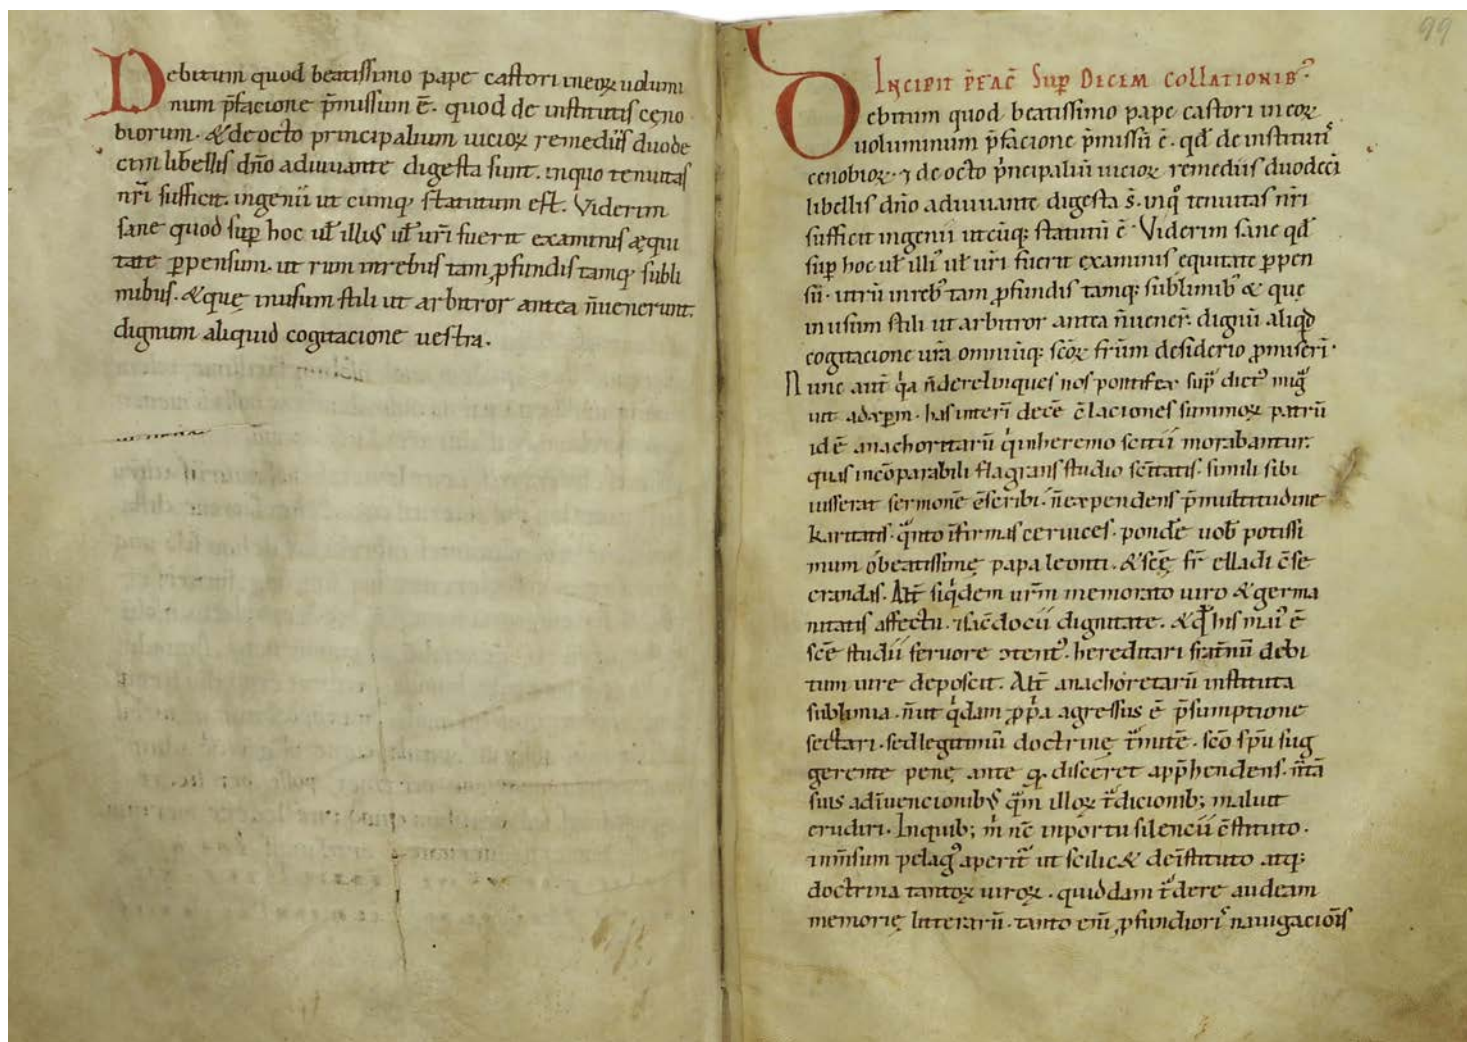 Debitum quod beatissimo pape castori ineoꝝ uolumi
num p̄facione p̄missum ē. quod de institutis cęno
biorum. & de octo principalium uicioꝝ remediis duode
cim libellis dn̄o adiuuante digesta sunt. inquo tenuitas
nr̄i sufficit ingenii ut cumq; statutum est. Viderim
sane quod suꝑ hoc ul̄ illius ul̄ ur̄i fuerit examinis ęqui
tate ꝑpensum. ut rum inrebus tam ꝓfundis tamq; subli
mibus. & quę inusum stili ut arbitror antea n̄uenerunt.
dignum aliquid cogitacione uestra.
99
Incipit p̄fac̄ Suꝑ Decem collationib᾽
Debitum quod beatissimo pape castori ineoꝝ
uoluminum p̄facione p̄missū ē. qd̄ de institutis
cenobioꝝ. ⁊ de octo pͥncipaliū uicioꝝ remediis duodecī
libellis dn̄o adiuuante digesta s̄. inqͦ tenuitas nr̄i
sufficit ingenii utcūq; statutū ē. Viderim sane qd̄
suꝑ hoc ul̄ illi᾽ ul̄ ur̄i fuerit examinis equitate ꝑpen
sū. utrū inreb᾽ tam ꝓfundis tamq; sublimib᾽ & que
inusum stili ut arbitror antea n̄uener̄. dignū aliqͥd
cogitacione ur̄a omniūq; sc̄oꝝ fr̄um desiderio ꝓmiserī.
Nunc aut̄ qͥa n̄derelinques nos pontifex sup̄ dict᾽ migͣ
uit adxp̄m. has interī decē c̄laciones summoꝝ patrū
id ē anachoritarū qͥinheremo scitii morabantur.
quas incōparabili flagrans studio sc̄itatis. simili sibi
iusserat sermonē c̄scribi. n̄expendens p̄multitudine
karitatis. qͣnto īfirmas ceruices. pondē uob̄ potissi
mum o beatissimę papa leonti. & scē fr̄ elladi c̄se
crandas. Alt̄ siqͥdem ur̄m memorato uiro & germa
nitatis affectu. ⁊ sac̄docii dignitate. & qd̄ his mai᾽ ē
sc̄e studii feruore ↄtent᾽. hereditari frat̄nū debi
tum iure deposcit. Alt̄ anachoretarū instituta
sublimia. n̄ut qͥdam ꝓpͥa agressus ē p̄sumptione
sectari. sedlegitimū doctrinę tͣmitē. sc̄o sp̄u sug
gerente penę ante ꝙ disceret app̄hendens. n̄tā
suis adīuencionib᾽ qͣm illoꝝ tͣdicionib; maluit
erudiri. Inquib; m̄ nc̄ inportu silencii c̄stituto.
inm̄sum pelag᾽ aperit̄ ut scilic& deīstituto atq;
doctrina tantoꝝ uiroꝝ. quiddam tͣdere audeam
memorię litterarū. tanto enī ꝓfundioris nauigacioīs